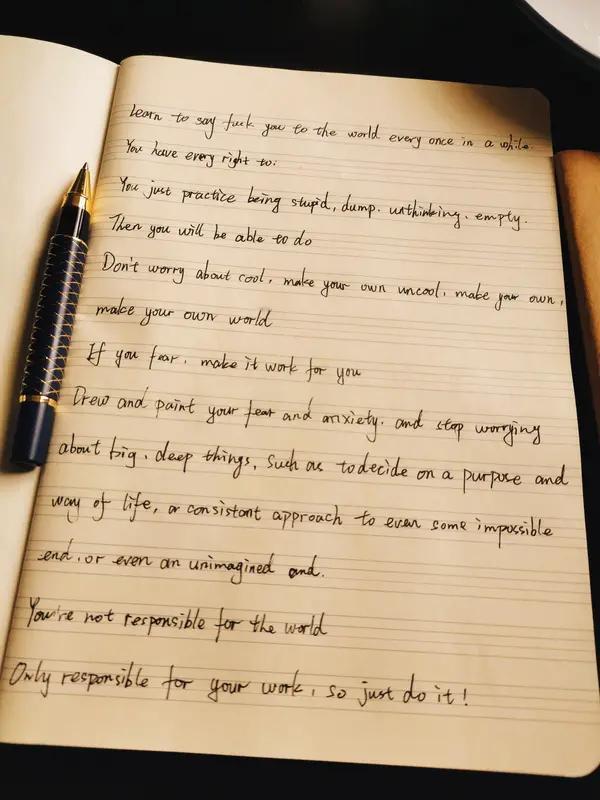 Learn to say fuck you to the world every once in a while.
You have every right to.
You just practice being stupid, dump. unthinking. empty.
Then you will be able to do
Don't worry about cool, make your own uncool. make your own,
make your own world
If you fear. make it work for you
Drew and paint your fear and anxiety. and stop worrying
about big. deep things, such as to decide on a purpose and
way of life, or consistant approach to even some impossible
end. or even an unimagined and.
You're not responsible for the world
Only responsible for your work, so just do it!